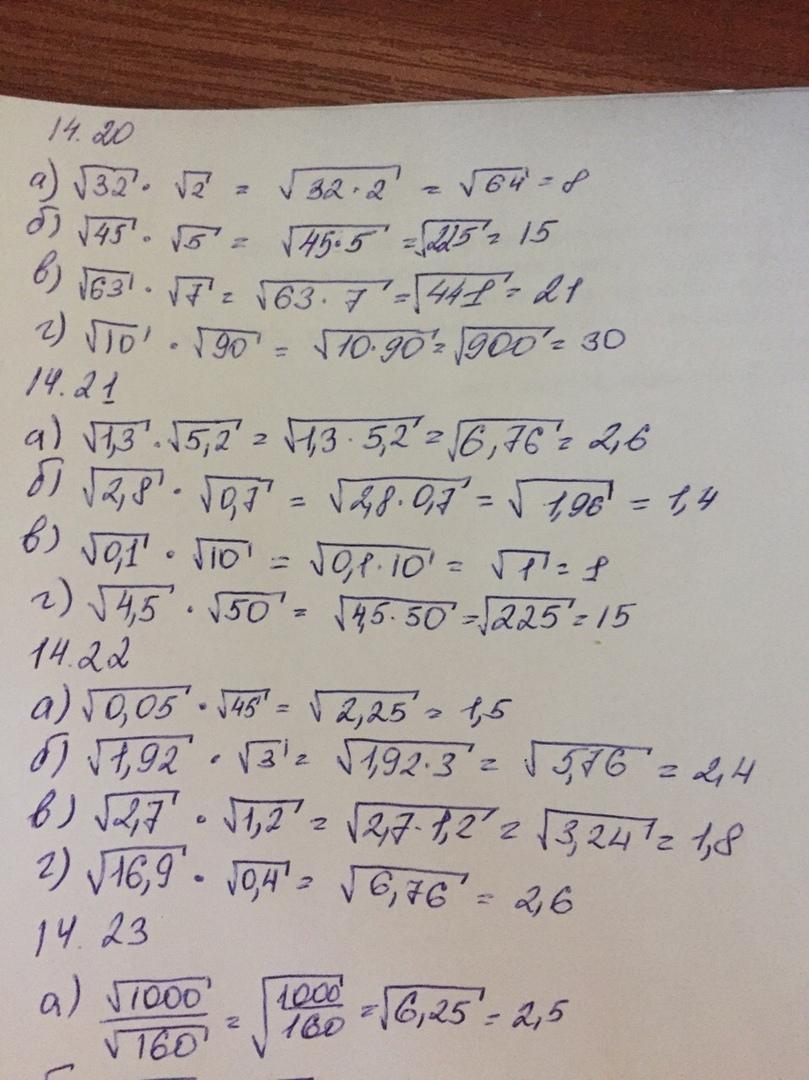 14.20
а) √32 · √2 = √32·2 = √64 = 8
б) √45 · √5 = √45·5 = √225 = 15
в) √63 · √7 = √63·7 = √441 = 21
г) √10 · √90 = √10·90 = √900 = 30
14.21
а) √1,3 · √5,2 = √1,3·5,2 = √6,76 = 2,6
б) √2,8 · √0,7 = √2,8·0,7 = √1,96 = 1,4
в) √0,1 · √10 = √0,1·10 = √1 = 1
г) √4,5 · √50 = √4,5·50 = √225 = 15
14.22
а) √0,05 · √45 = √2,25 = 1,5
б) √1,92 · √3 = √1,92·3 = √5,76 = 2,4
в) √2,7 · √1,2 = √2,7·1,2 = √3,24 = 1,8
г) √16,9 · √0,4 = √6,76 = 2,6
14.23
а) √1000/√160 = √1000/160 = √6,25 = 2,5